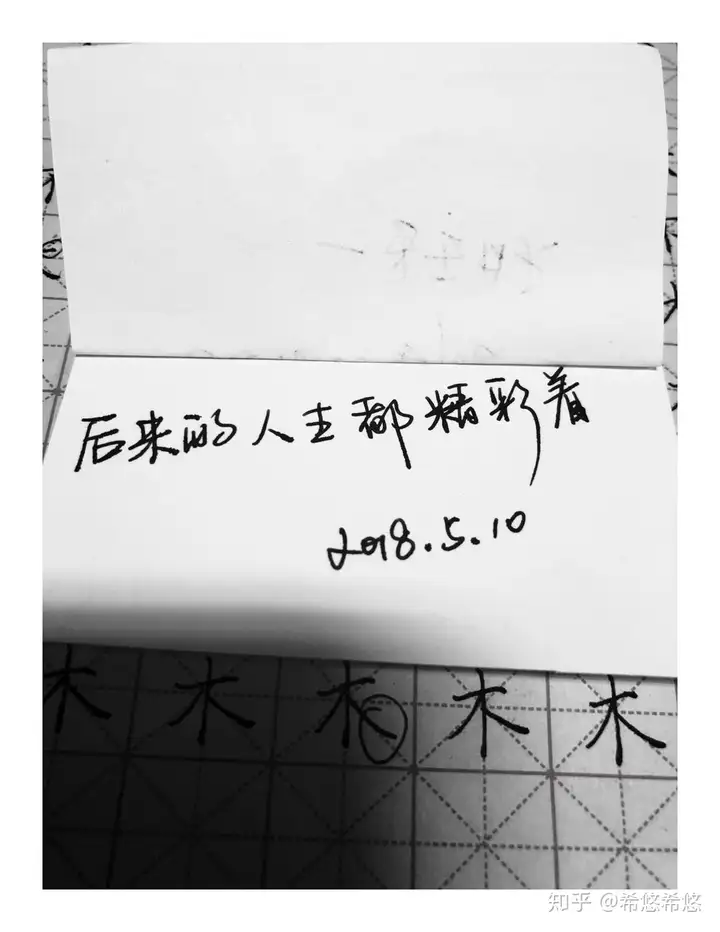 后来的人生都精彩着
2018.5.10
木 木 木 木 木
知乎 @希悠希悠